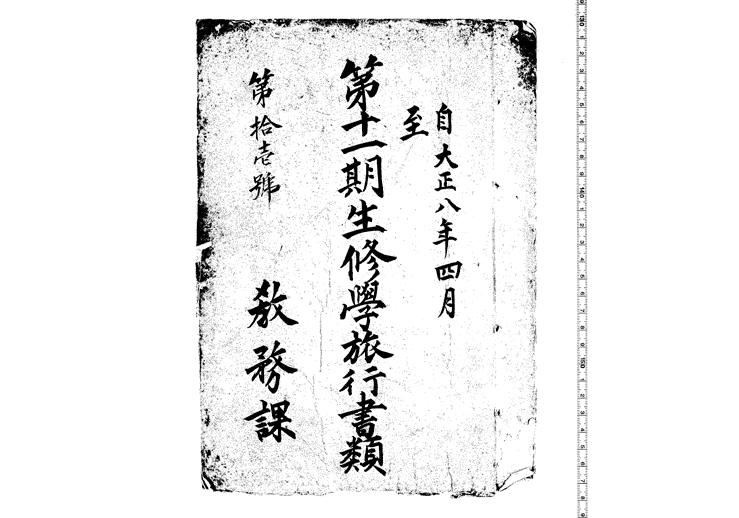 自大正八年四月
至
第十一期生修學旅行書類
第拾壱號
教務課